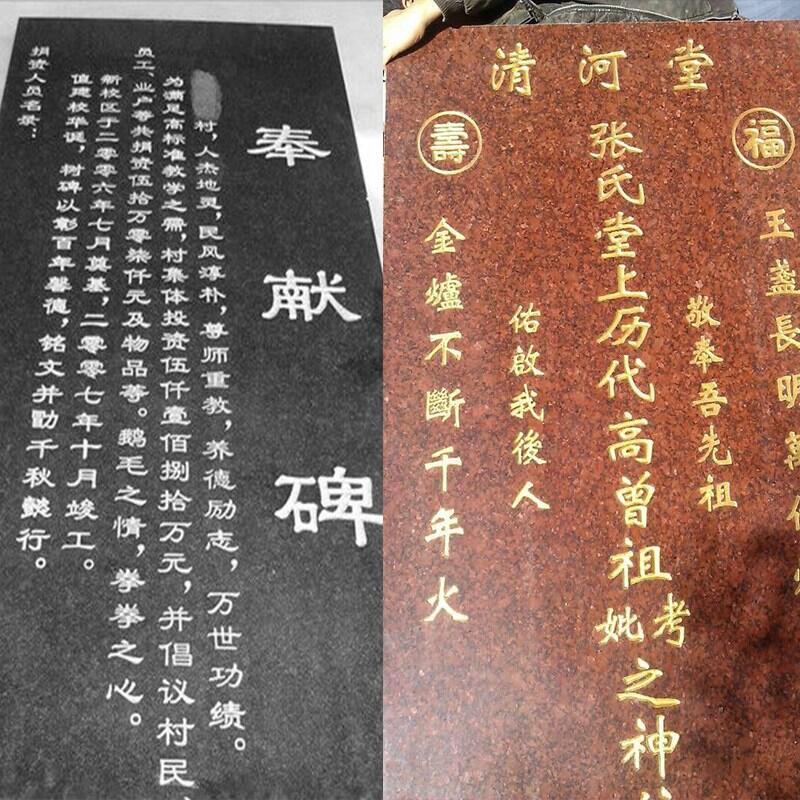 奉献碑
村，人杰地灵，民风淳朴，尊师重教，养德励志，万世功绩。
为满足高标准教学之需，村集体投资伍仟壹佰捌拾万元，并倡议村民、
员工、业户等共捐资伍拾万零柒仟元及物品等。鹅毛之情，拳拳之心。
新校区于二零零六年七月奠基，二零零七年十月竣工。
值建校华诞，树碑以彰百年馨德，铭文并勖千秋懿行。
捐资人员名录：
清河堂
福
壽
玉盏長明萬
敬奉吾先祖
张氏堂上历代高曾祖考妣之神
佑啟我後人
金爐不斷千年火